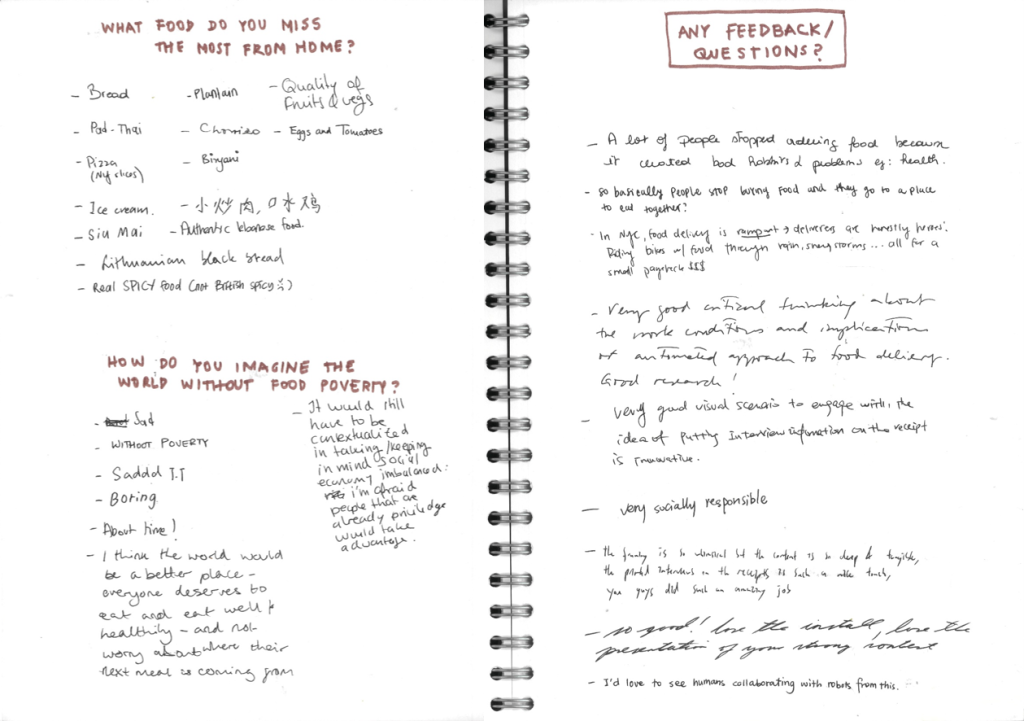 WHAT FOOD DO YOU MISS
THE MOST FROM HOME?
- Bread
- Plantain
- Quality of
fruits & vegs
- Pad-Thai
- Chorizo
- Eggs and Tomatoes
- Pizza
(NY slices)
- Biryani
- Ice cream.
- 小炒肉, 口水鸡
- Siu Mai
- Authentic lebanese food.
- Lithuanian black bread
- Real SPICY food (not British spicy :))
HOW DO YOU IMAGINE THE
WORLD WITHOUT FOOD POVERTY?
- Sad
- WITHOUT POVERTY
- Saddd T.T
- Boring
- About time!
- I think the world would
be a better place -
everyone deserves to
eat and eat well &
healthily - and not
worry about where their
next meal is coming from
- It would still
have to be
contextualized
in taking/keeping
in mind social
economy imbalanced.
i'm afraid
people that are
already priviledge
would take
advantage.
ANY FEEDBACK/
QUESTIONS?
- A lot of people stopped ordering food because
it created bad habbits & problems eg: health.
- so basically people stop buying food and they go to a place
to eat together?
- In NYC, food delivery is rampant → deliverers are honestly heroes.
Riding bikes w/ food through rain, snow, storms... all for a
small paycheck $$$
- Very good critical thinking about
the work conditions and implications
of automated approach to food delivery.
Good research!
- very good visual scenario to engage with, the
idea of putting Interview information on the receipt
is innovative.
- very socially responsible
- the is so but the content is so deep & tangible,
the printed interviews on the receipts is such a nice touch,
you guys did such an amazing job
- so good! love the install, love the
presentation of your strong content
- I'd love to see humans collaborating with robots from this.